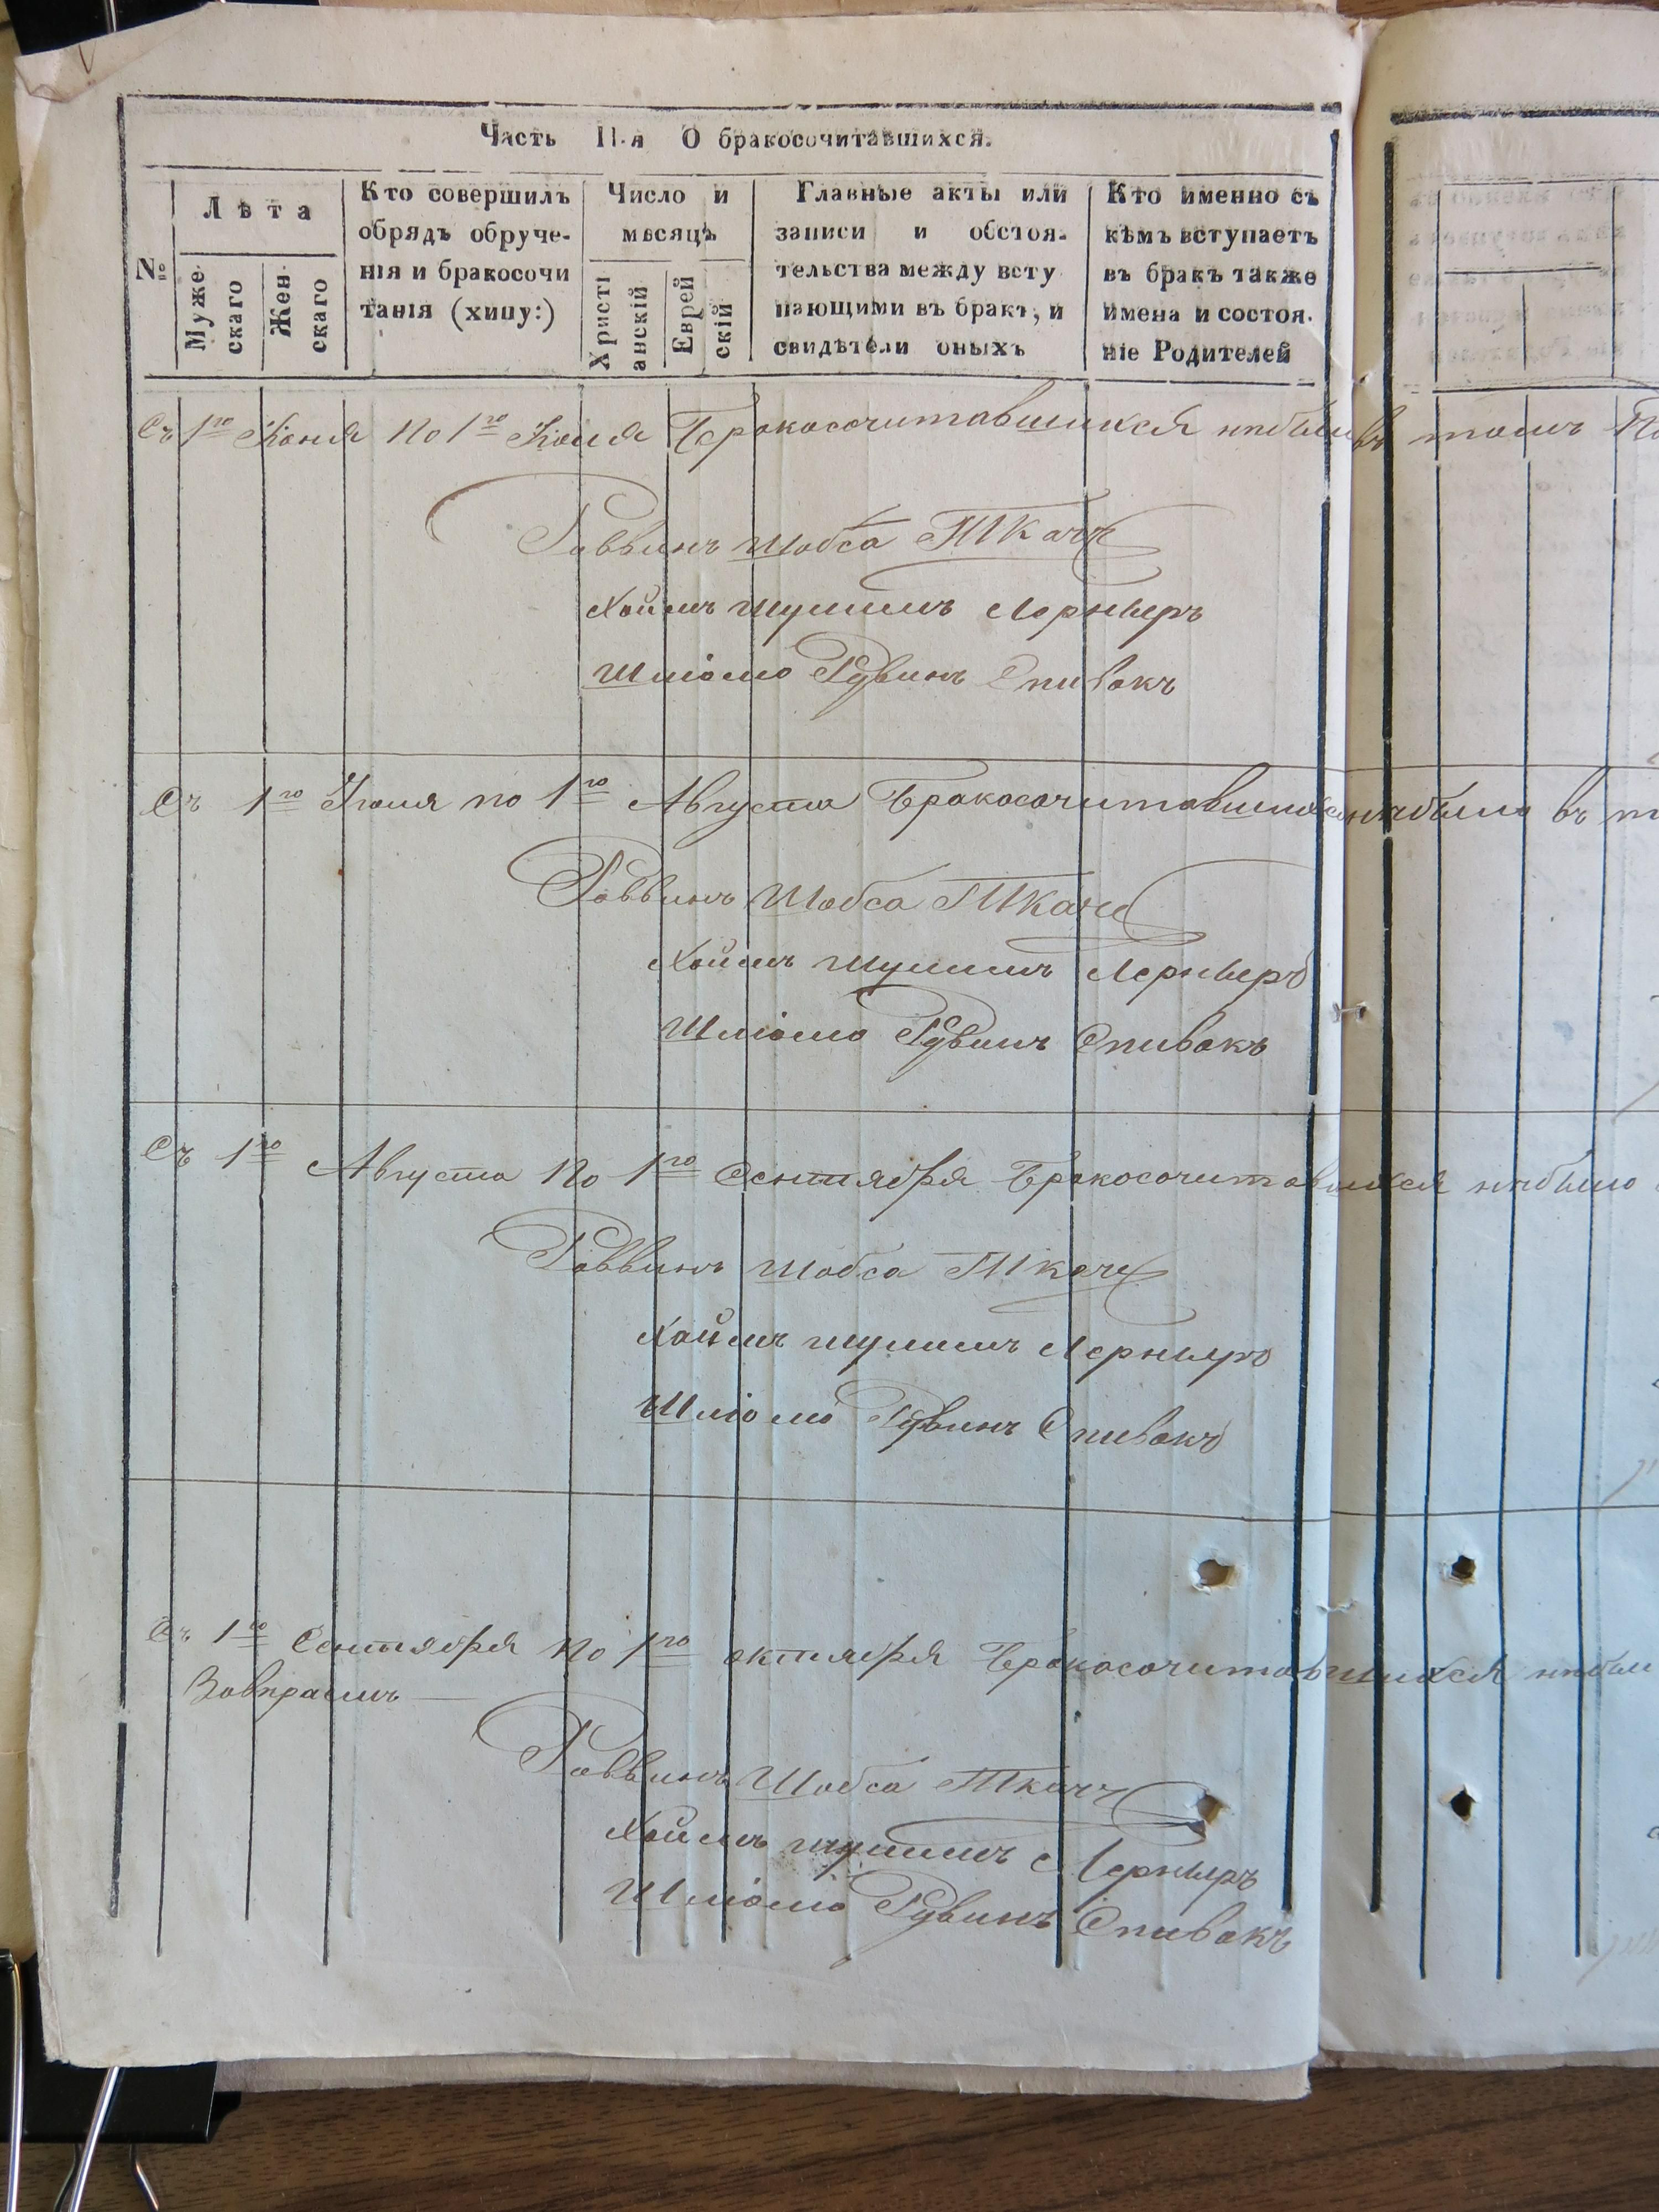 Часть II-я О бракосочитавшихся.
№
Лѣта
Мужескаго
Женскаго
Кто совершилъ
обрядъ обруче-
нія и бракосочи
танія (хипу:)
Число и
мѣсяцъ
Христіанскій
Еврейскій
Главные акты или
записи и обстоя-
тельства между всту
пающими въ бракъ, и
свидѣтели оныхъ
Кто именно съ
кѣмъ вступаетъ
въ бракъ также
имена и состоя-
ніе Родителей
Съ 1го Іюня по 1го Іюля Бракосочитавшихся небыло въ томъ
Раввинъ Шабса Ткачъ
Хаимъ Шулимъ Лернеръ
Шліомо Рувинъ Спивакъ
Съ 1го Іюля по 1го Августа Бракосочитавшихся небыло въ
Раввинъ Шабса Ткачъ
Хаимъ Шулимъ Лернеръ
Шліомо Рувинъ Спивакъ
Съ 1го Августа по 1го Сентября Бракосочитавшихся небыло
Раввинъ Шабса Ткачъ
Хаимъ Шулимъ Лернеръ
Шліомо Рувинъ Спивакъ
Съ 1го Сентября по 1го октября Бракосочитавшихся небыло
Раввинъ Шабса Ткачъ
Хаимъ Шулимъ Лернеръ
Шліомо Рувинъ Спивакъ